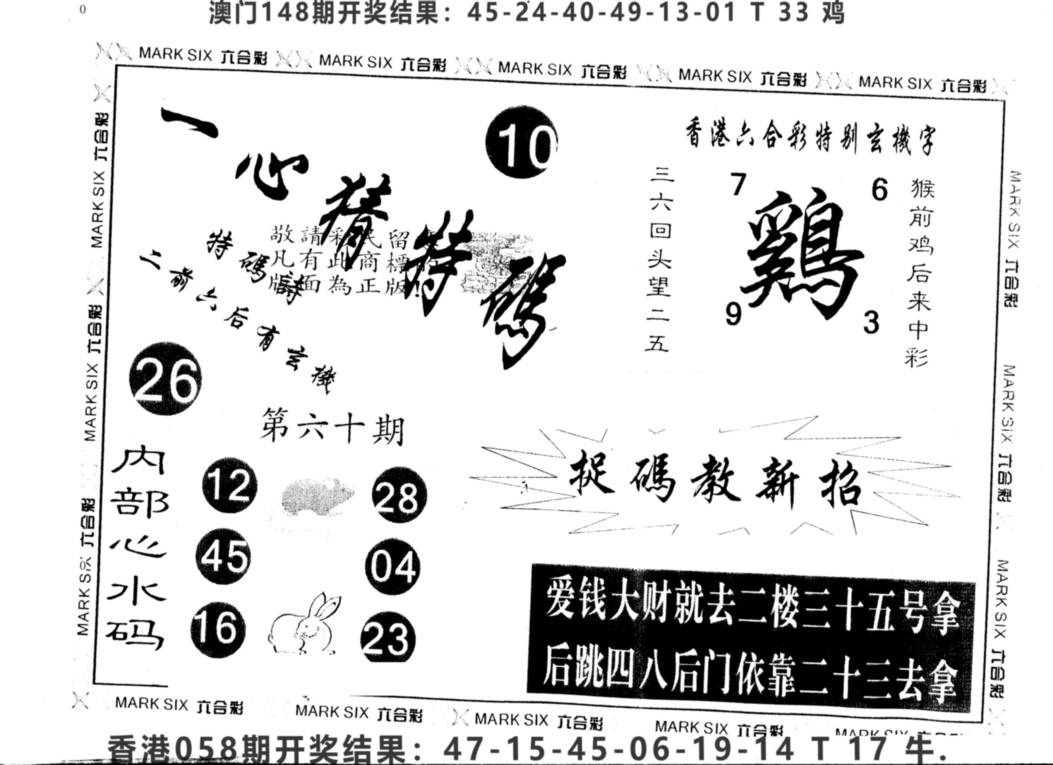 澳门148期开奖结果：45-24-40-49-13-01 T 33 鸡
MARK SIX 六合彩 MARK SIX 六合彩 MARK SIX 六合彩 MARK SIX 六合彩 MARK SIX 六合彩
一心猜特碼
10
香港六合彩特别玄機字
三六回头望二五
7
6
鷄
9
3
猴前鸡后来中彩
敬請彩民留
凡有此商標
版面為正版
特碼詩
二前六后有玄機
26
第六十期
内部心水码
12
28
45
04
16
23
捉碼教新招
爱钱大财就去二楼三十五号拿
后跳四八后门依靠二十三去拿
MARK SIX 六合彩
MARK SIX 六合彩
MARK SIX 六合彩
MARK SIX 六合彩
MARK SIX 六合彩
MARK SIX 六合彩
MARK SIX 六合彩 MARK SIX 六合彩 MARK SIX 六合彩 MARK SIX 六合彩
香港058期开奖结果：47-15-45-06-19-14 T 17 牛.